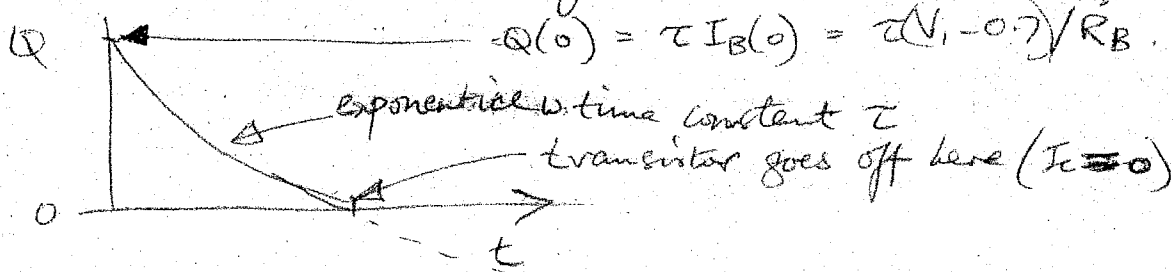 Q
Q(0) = τ I_B(0) = τ(V₁ - 0.7)/R_B.
exponential w. time constant τ
transistor goes off here (I_c = 0)
0
t